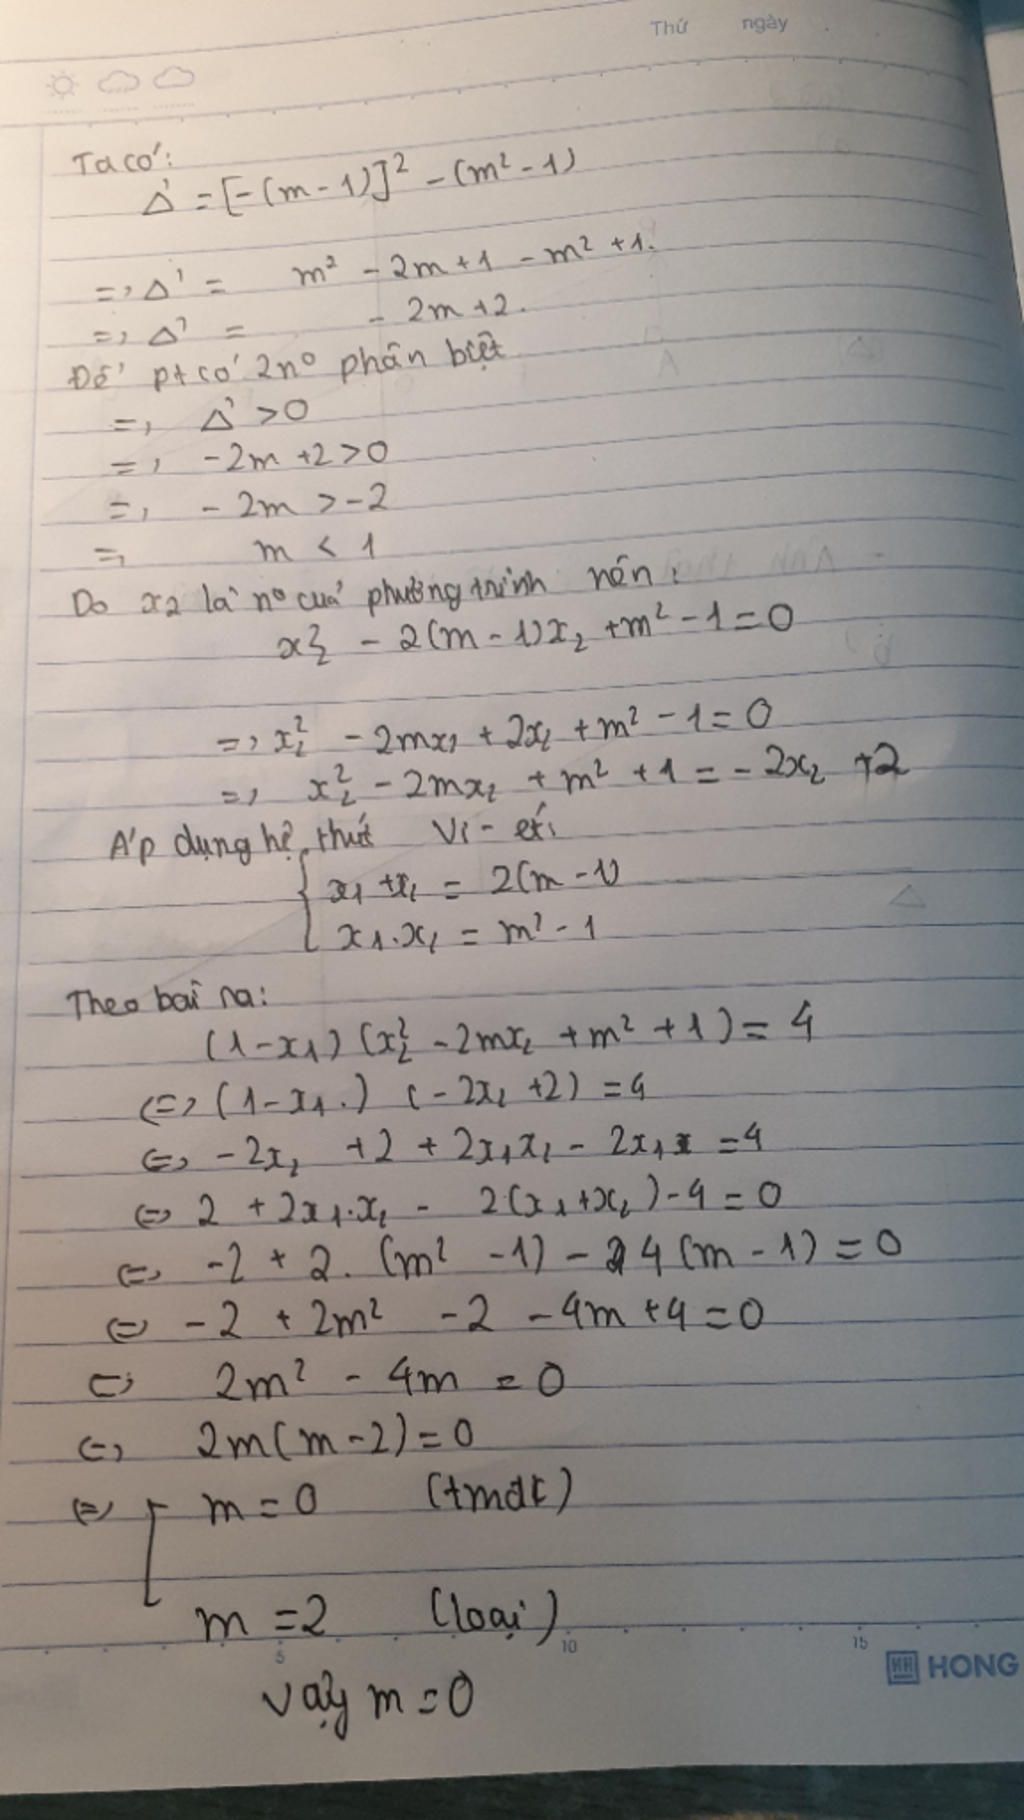 Thứ ngày
Ta có:
Δ' = [-(m-1)]² - (m²-1)
=> Δ' = m² - 2m + 1 - m² + 1.
=> Δ' = - 2m + 2.
Để pt có 2 n⁰ phân biệt
=> Δ' > 0
=> -2m + 2 > 0
=> - 2m > -2
=> m < 1
Do x₂ là n⁰ của phương trình nên:
x₂² - 2(m-1)x₂ + m² - 1 = 0
=> x₂² - 2mx₂ + 2x₂ + m² - 1 = 0
=> x₂² - 2mx₂ + m² + 1 = - 2x₂ + 2
Áp dụng hệ thức Vi-ét:
x₁ + x₂ = 2(m-1)
x₁.x₂ = m² - 1
Theo bài ra:
(1-x₁)(x₂² - 2mx₂ + m² + 1) = 4
<=> (1-x₁.) (-2x₂ + 2) = 4
<=> -2x₂ + 2 + 2x₁x₂ - 2x₁ = 4
<=> 2 + 2x₁.x₂ - 2(x₁+x₂) - 4 = 0
<=> -2 + 2.(m² - 1) - 4(m-1) = 0
<=> -2 + 2m² - 2 - 4m + 4 = 0
<=> 2m² - 4m = 0
<=> 2m(m-2) = 0
<=> m = 0 (tmđk)
m = 2 (loại)
5 10 15
HH HONG
vậy m = 0